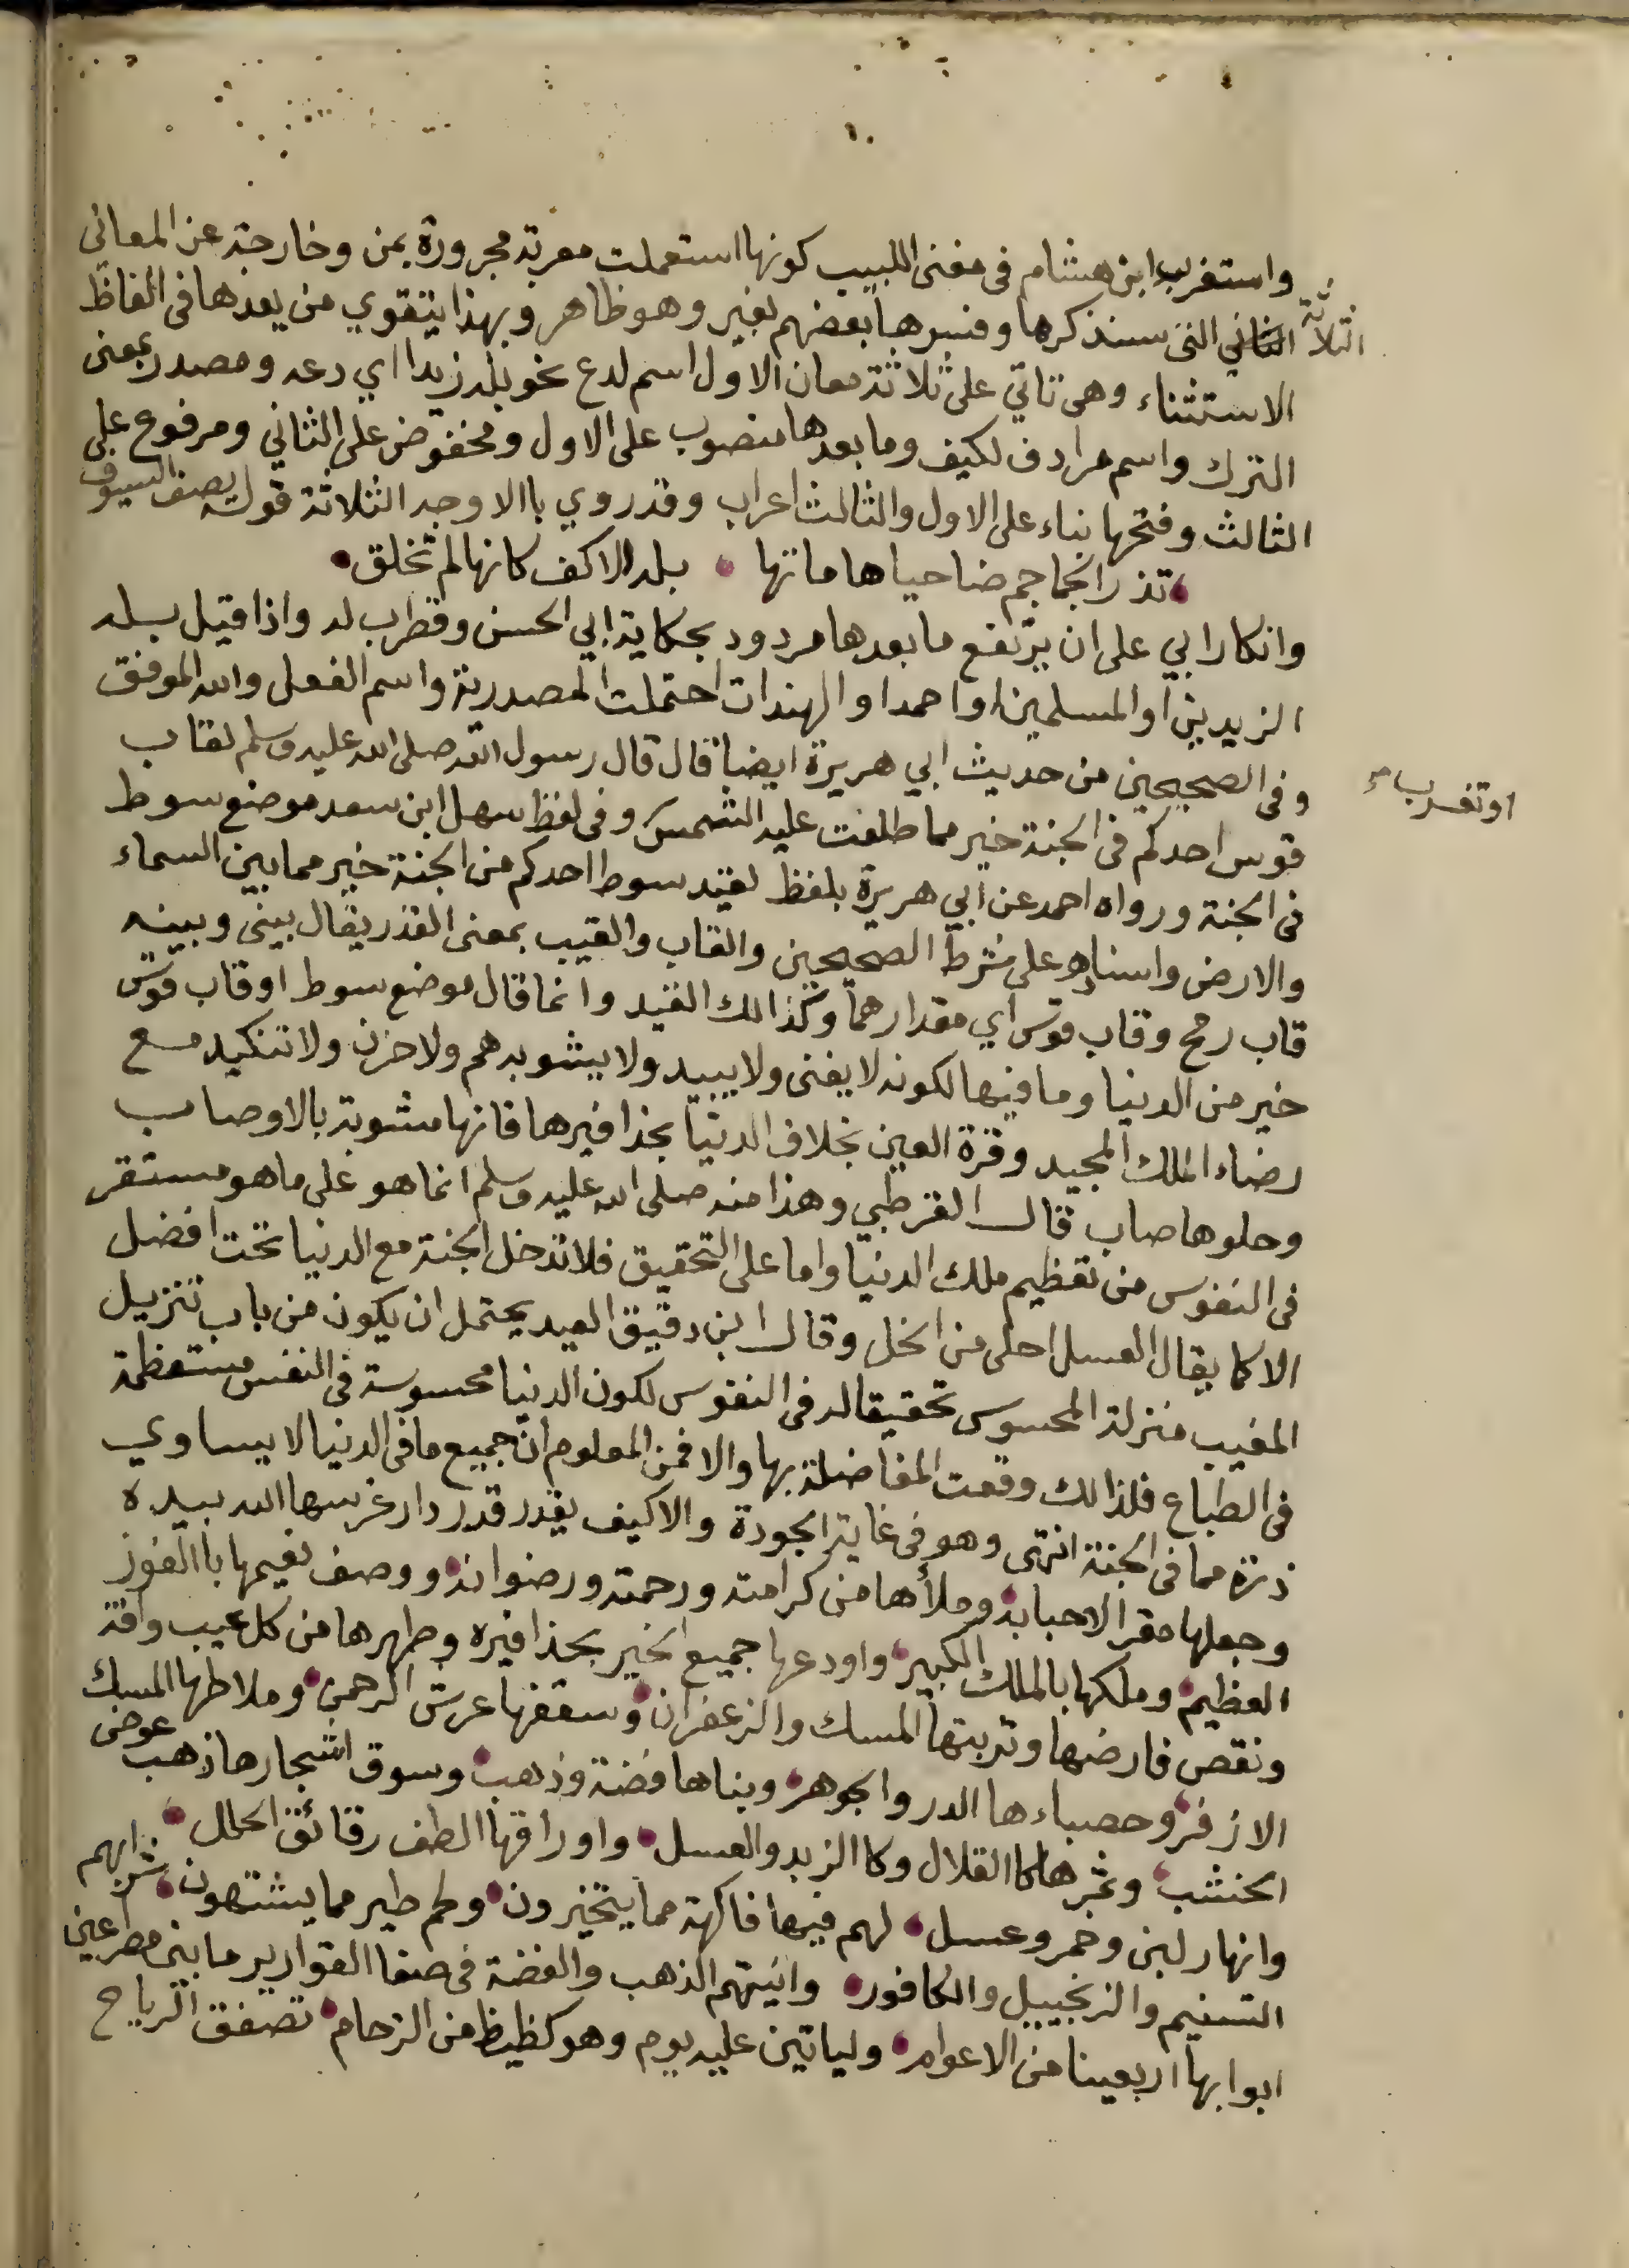 واستغرب ابن هشام في مغنى اللبيب كونها استعملت معربة مجرورة بمن وخارجة عن المعانى
الثلاثة التي سنذكرها وفسرها بعضهم بغير وهو ظاهر وبهذا يتقوي من يعدها فى الفاظ
الاستثناء وهى تاتي على ثلاثة معان الاول اسم لدع نحو بله زيدا اي دعه ومصدر بمعنى
الترك واسم مرادف لكيف وما بعدها منصوب على الاول ومخفوض على الثاني ومرفوع على
الثالث وفتحها بناء على الاول والثالث اعراب وقد روي باالاوجه الثلاثة قوله يصف السيوف
تذر الجماجم ضاحيا هاماتها بله الاكف كانها لم تخلق
وانكار ابي على ان يرتفع ما بعدها مردود بحكاية ابي الحسن وقطرب له واذا قيل بله
الزيدين او المسلمين او احمد او الهندات احتملت المصدرية واسم الفعل والله الموفق
وفى الصحيحين من حديث ابي هريرة ايضا قال قال رسول الله صلى الله عليه وسلم لقاب
قوس احدكم فى الجنة خير مما طلعت عليه الشمس وفى لفظ سهل ابن سعد موضع سوط
او تغرب
فى الجنة ورواه احمد عن ابي هريرة بلفظ لقيد سوط احدكم من الجنة خير مما بين السماء
والارض واسناده على شرط الصحيحين والقاب والقيب بمعنى القدر يقال بينى وبينه
قاب رمح وقاب قوس اي مقدارهما وكذالك القيد وانما قال موضع سوط او قاب قوس
خير من الدنيا وما فيها لكونه لا يفنى ولا يبيد ولا يشوبه هم ولا حزن ولا تنكيد مع
رضاء الملك المجيد وقرة العين بخلاف الدنيا بحذافيرها فانها مشوبة بالاوصاب
وحلوها صاب قال القرطبي وهذا منه صلى الله عليه وسلم انما هو على ما هو مستقر
فى النفوس من تعظيم ملك الدنيا واما على التحقيق فلا تدخل الجنة مع الدنيا تحت افضل
الا كما يقال العسل احلى من الخل وقال ابن دقيق العيد يحتمل ان يكون من باب تنزيل
المغيب منزلة المحسوس تحقيقا له فى النفوس لكون الدنيا محسوسة فى النفس مستعظمة
فى الطباع فلذالك وقعت المفاضلة بها والا فمن المعلوم ان جميع ما فى الدنيا لا يساوي
ذرة مما فى الجنة انتهى وهو فى غاية الجودة والا كيف يقدر قدر دار غرسها الله بيده
وجعلها مقر الاحبابه وملأها من كرامته ورحمته ورضوانه ووصف نعيمها باالفوز
العظيم وملكها بالملك الكبير واودعها جميع الخير بحذافيره وطهرها من كل عيب وافة
ونقص فارضها وتربتها المسك والزعفران وسقفها عرش الرحمن وملاطها المسك
الازفر وحصباءها الدر والجوهر وبناها فضة وذهب وسوق اشجارها ذهب عوض
الخشب وثمرها كاالقلال وكاالزبد والعسل واوراقها الطف رقائق الحلل
وانهار لبن وخمر وعسل لهم فيها فاكهة مما يتخيرون ولحم طير مما يشتهون شرابهم
التسنيم والزنجبيل والكافور وانيتهم الذهب والفضة فى صفا القوارير ما بين مصرعين
ابوابها اربعينا من الاعوام ولياتين عليه يوم وهو كظيظ من الزحام تصفق الرياح